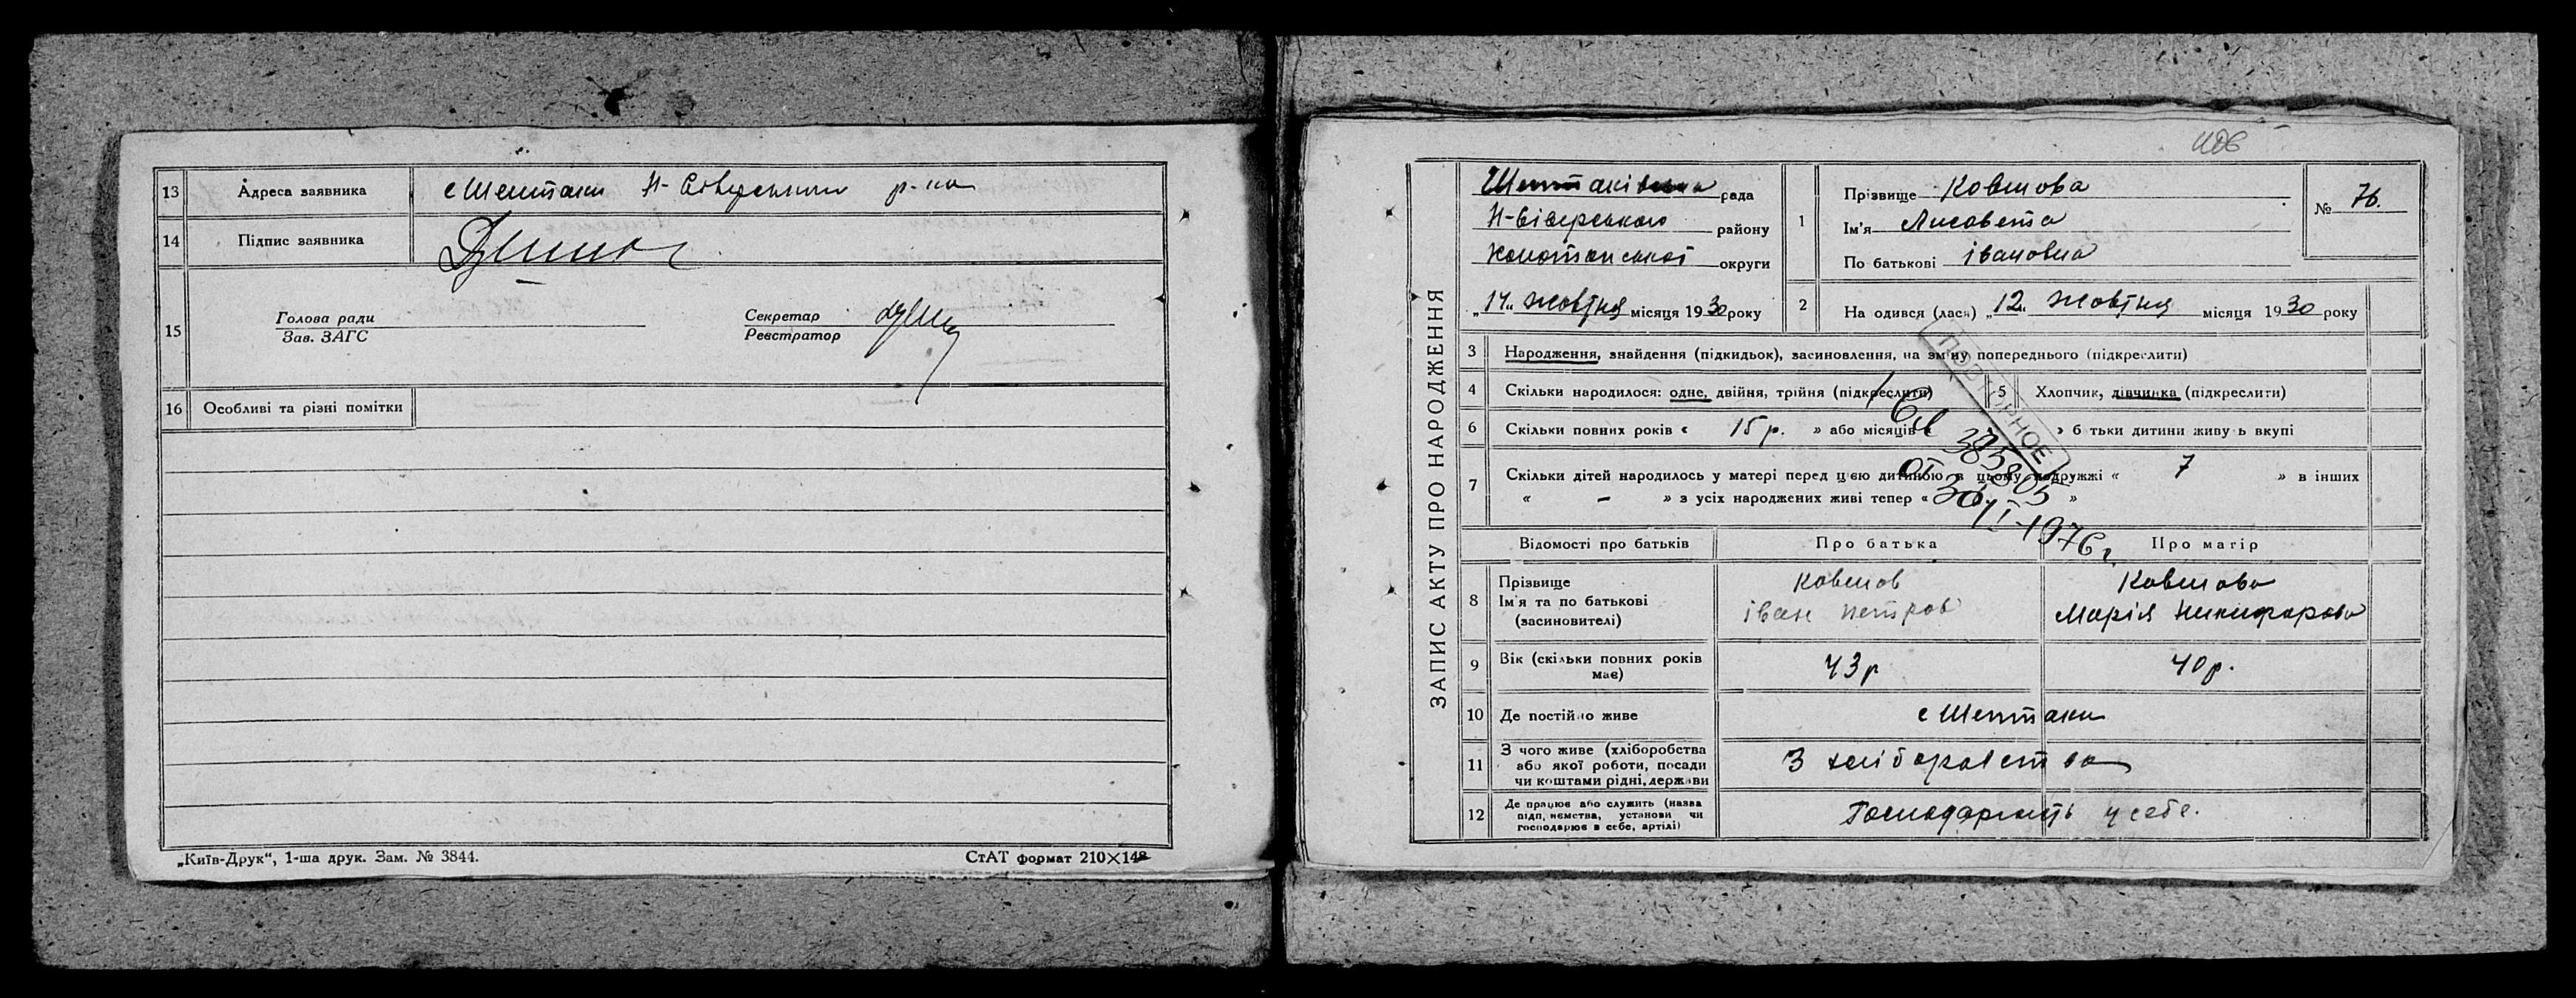 13 Адреса заявника с Шептаки Н-Сіверського р-на
14 Підпис заявника
15 Голова ради
Зав. ЗАГС
Секретар
Реєстратор
16 Особливі та різні помітки
„Київ-Друк“, 1-ша друк. Зам. № 3844.
СтАТ формат 210×148
ЗАПИС АКТУ ПРО НАРОДЖЕННЯ
Шептаківська рада
Н-Сіверського району
Конотопської округи
„14“ жовтня місяця 1930 року
1 Прізвище Ковшова
Ім'я Лисавета
По батькові івановна
№ 76.
2 На одився (лася) „12“ жовтня місяця 1930 року
3 Народження, знайдення (підкидьок), засиновлення, на зміну попереднього (підкреслити)
4 Скільки народилося: одне, двійня, трійня (підкреслити)
5 Хлопчик, дівчинка (підкреслити)
ПОВТОРНОЕ
6 Скільки повних років « 15 р. » або місяців « » б тьки дитини живу ь вкупі
7 Скільки дітей народилось у матері перед цією дитиною в цьому подружжі « 7 » в інших
« - » з усіх народжених живі тепер « »
1976 г.
Відомості про батьків Про батька Про матір
8 Прізвище
Ім'я та по батькові
(засиновителі)
Ковшов
іван петров
Ковшова
Марія Никифарова
9 Вік (скільки повних років
має)
43 р
40 р.
10 Де постійно живе с Шептаки
11 З чого живе (хліборобства
або якої роботи, посади
чи коштами рідні, держави
З хліборобства
12 Де працює або служить (назва
підп, иємства, установи чи
господарює в себе, артілі)
Господарюють у себе.